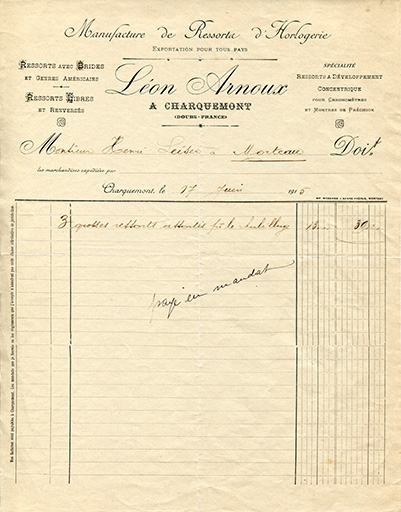 Manufacture de Ressorts d'Horlogerie
EXPORTATION POUR TOUS PAYS
RESSORTS AVEC BRIDES
ET GENRES AMÉRICAINS
RESSORTS FIBRES
ET RENVERSÉS
Léon Arnoux
A CHARQUEMONT
(DOUBS - FRANCE)
SPÉCIALITÉ
RESSORTS A DÉVELOPPEMENT
CONCENTRIQUE
POUR CHRONOMÈTRES
ET MONTRES DE PRÉCISION
Monsieur Henri à Morteau Doit
les marchandises expédiées par
Charquemont, le 17 Juin 1915
3 grosses ressorts assortis 13 39
payé en mandat